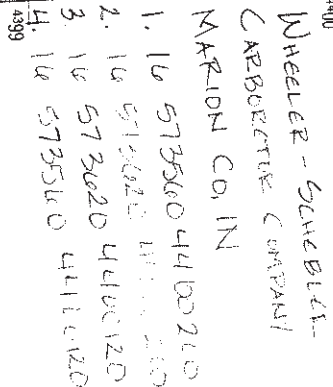 4400
WHEELER-SCHEBLER
CARBORETUR COMPANY
MARION CO, IN
1. 16 573560 4400260
2. 16 573620
3 16 573620 4400120
4. 16 573560 4400120
4399